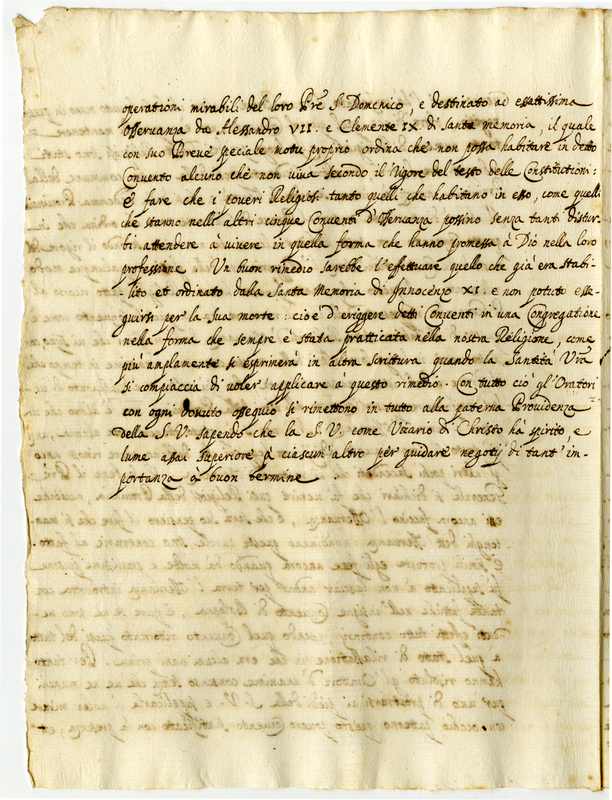 operationi mirabili del loro Pre S. Domenico, e destinato ad esattissima
Osservanza da Alessandro VII. e Clemente IX. di santa memoria, il quale
con suo Breve speciale motu proprio ordina che non possa habitare in detto
Convento alcuno che non viva secondo il rigore del testo delle Constitutioni:
E fare che i poveri Religiosi tanto quelli che habitano in esso, come quelli
che stanno nelli altri cinque Conventi d'Osservanza possino senza tanti distur-
bi attendere à vivere in quella forma che hanno promessa à Dio nella loro
professione. Un buon rimedio sarebbe l'effettuare quello che già era stabi-
lito et ordinato dalla Santa Memoria di Innocenzo XI. e non potuto ese-
guirsi per la sua morte: cioè d'erigere detti Conventi in una Congregatione
nella forma che sempre è stata pratticata nella nostra Religione, come
più amplamente si esprimerà in altra scrittura quando la Santità Vra
si compiaccia di voler applicare a questo rimedio. Con tutto ciò gl'Oratori
con ogni dovuto ossequio si rimettono in tutto alla paterna Providenza
della S. V. sapendo che la S. V. come Vicario di Christo hà spirito, e
lume assai superiore à ciascun altro per guidare negotij di tant'im-
portanza a buon termine.